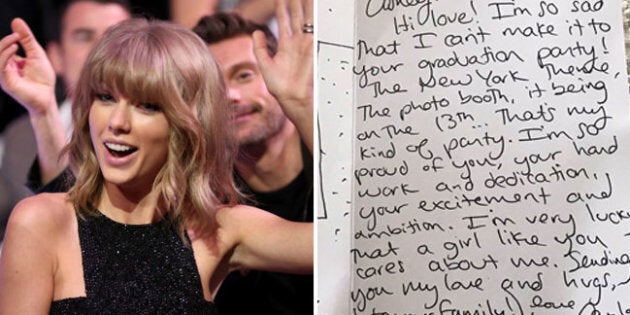 Hi love! I'm so sad
that I can't make it to
your graduation party!
The New York theme,
The photo booth, it being,
on the 13th... That's my
kind of party. I'm so
proud of you, your hard
work and dedication,
your excitement and
ambition. I'm very lucky
that a girl like you
cares about me. Sending
you my love and hugs,
family! love